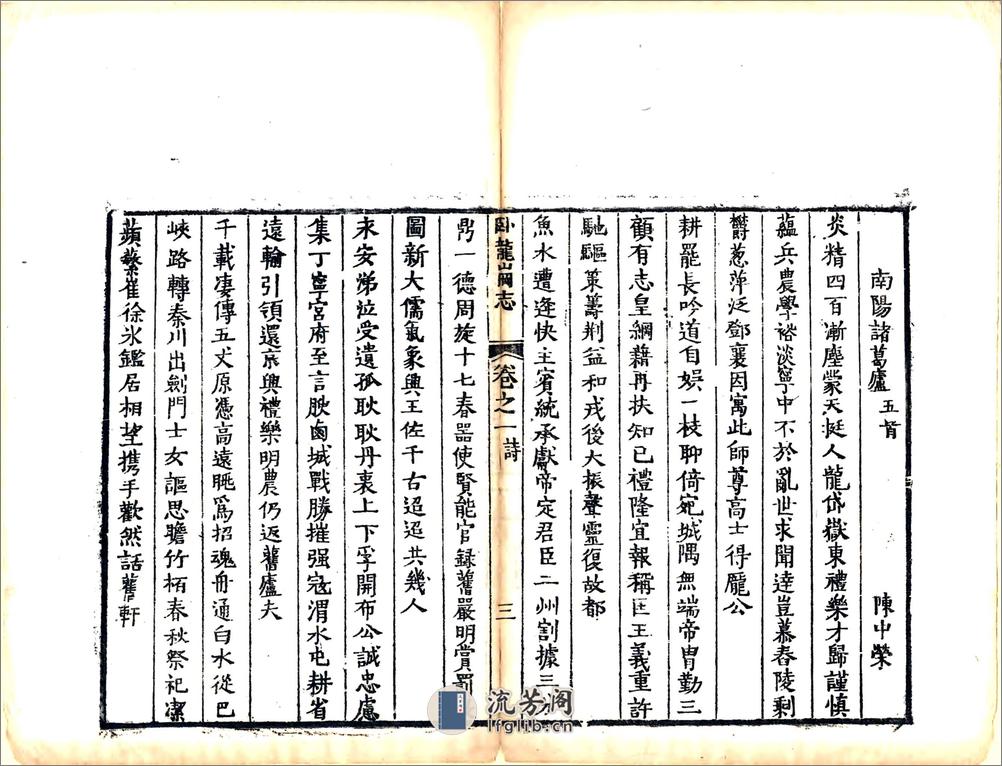 南陽諸葛廬五首 陳中榮
炎精四百漸塵蒙天挺人龍岱嶽東禮樂才歸謹慎
蘊兵農學裕淡寧中不於亂世求聞達豈慕舂陵剩
欝葱萍泛鄧襄因寓此師尊高士得龐公
耕罷長吟道自娱一枝聊倚宛城隅無端帝胄勤三
顧有志皇綱藉再扶知已禮隆宜報稱匡王義重許
馳驅䇿籌荆益和戎後大振聲靈復故都
魚水遭逢快主賓統承獻帝定君臣二州割據三
臥龍岡志 卷之一 詩 三
鼎一德周旋十七春器使賢能官録舊嚴明賞罰
圖新大儒氣象興王佐千古迢迢共幾人
永安涕泣受遺孤耿耿丹衷上下孚開布公誠忠慮
集丁寧宮府至言腴鹵城戰勝摧强寇渭水屯耕省
遠輸引領還京興禮樂明農仍返舊廬夫
千載凄傳五丈原憑高遠眺爲招魂舟通白水從巴
峽路轉秦川出劍門士女謳思瞻竹栢春秋祭祀潔
蘋蘩崔徐氷鑑居相望携手歡然話舊軒
流芳阁
lfglib.com